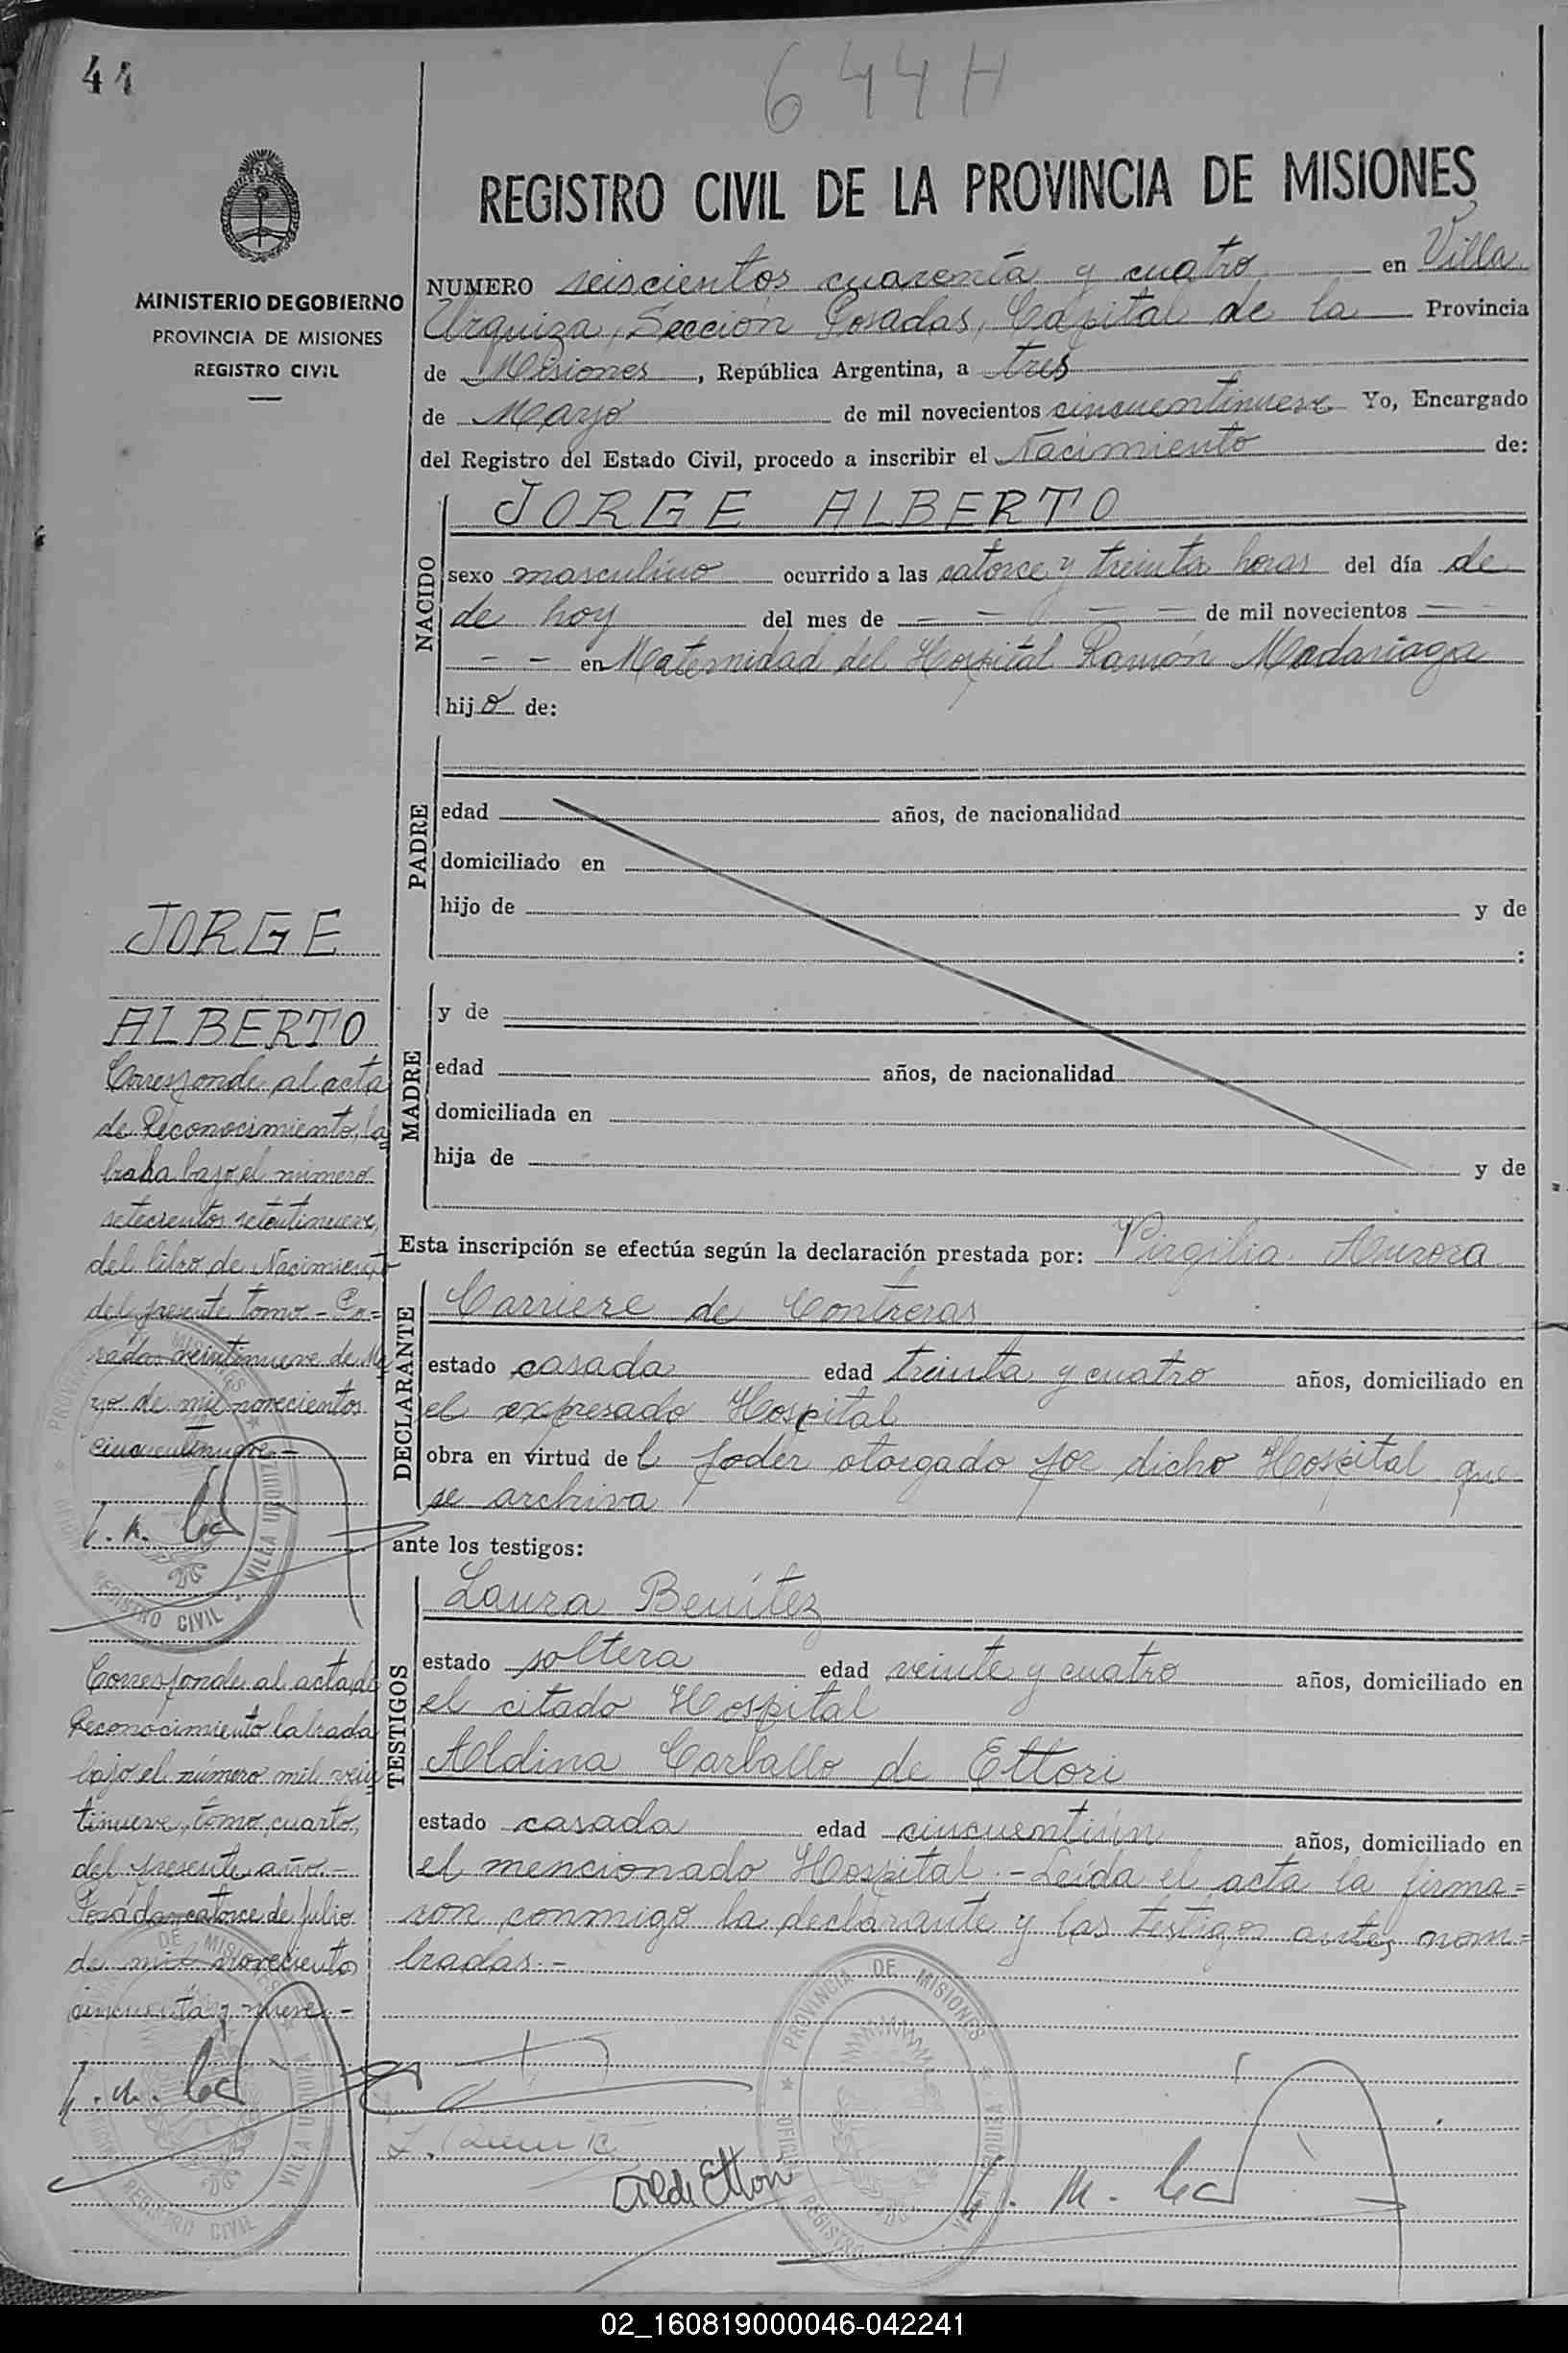 44
644H
REGISTRO CIVIL DE LA PROVINCIA DE MISIONES
MINISTERIO DE GOBIERNO
PROVINCIA DE MISIONES
REGISTRO CIVIL
NUMERO seiscientos cuarenta y cuatro en Villa
Urquiza, Sección Posadas, Capital de la Provincia
de Misiones, República Argentina, a tres
de Mayo de mil novecientos cincuentinueve Yo, Encargado
del Registro del Estado Civil, procedo a inscribir el Nacimiento de:
NACIDO
JORGE ALBERTO
sexo masculino ocurrido a las catorce y treinta horas del día de
de hoy del mes de - - - - de mil novecientos - -
- - en Maternidad del Hospital Ramón Madariaga
hijo de:
PADRE
edad años, de nacionalidad
domiciliado en
hijo de y de
:
MADRE
y de
edad años, de nacionalidad
domiciliada en
hija de y de
Esta inscripción se efectúa según la declaración prestada por: Virgilia Aurora
DECLARANTE
Carriere de Contreras
estado casada edad treinta y cuatro años, domiciliado en
el expresado Hospital
obra en virtud del poder otorgado por dicho Hospital que
se archiva
ante los testigos:
TESTIGOS
Laura Benítez
estado soltera edad veinte y cuatro años, domiciliado en
el citado Hospital
Aldina Carballo de Ettori
estado casada edad cincuentiún años, domiciliado en
el mencionado Hospital.- Leída el acta la firma=
ron conmigo la declarante y las testigos antes nom=
bradas.-
JORGE
ALBERTO
Corresponde al acta
de Reconocimiento, la
brada bajo el número
setecientos setentinueve,
del libro de Nacimiento
del presente tomo.- Po=
sadas veintinueve de Ma
yo de mil novecientos
cincuentinueve.-
Corresponde al acta de
Reconocimiento labrada
bajo el número mil vein
tinueve, tomo cuarto,
del presente año.-
Posadas catorce de julio
de mil novecientos
cincuenta y nueve.-
PROVINCIA DE MISIONES
REGISTRO CIVIL
VILLA URQUIZA
A C de Ettori
02_160819000046-042241